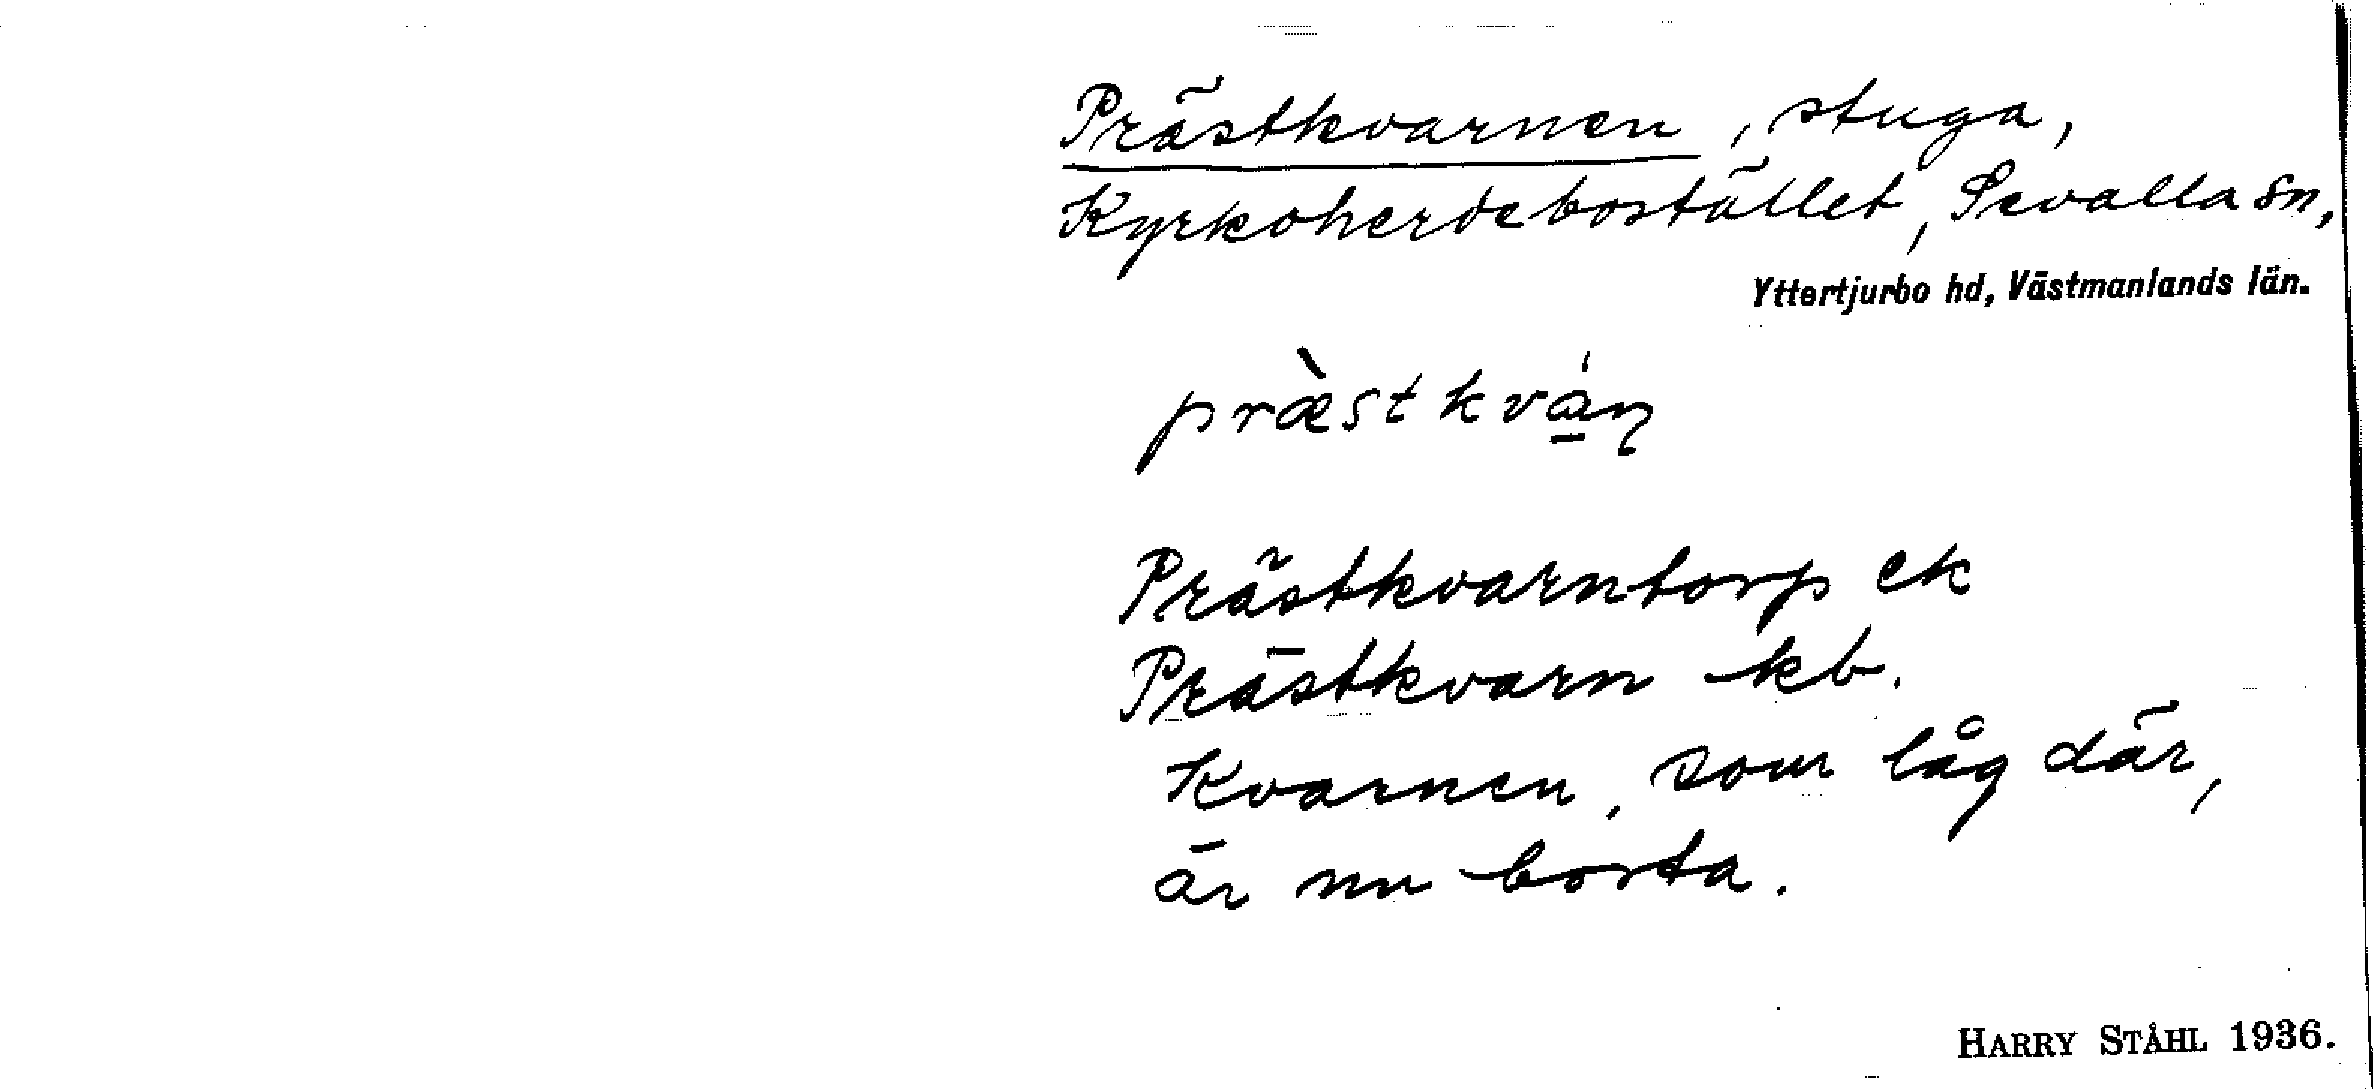 Prästkvarnen, stuga,
Kyrkoherdebostället, Sevalla sn,
Yttertjurbo hd, Västmanlands län.
præ̀stkvá̱ɳ
Prästkvarntorp ek
Prästkvarn kb.
Kvarnen, som låg där,
är nu borta.
HARRY STÅHL 1936.